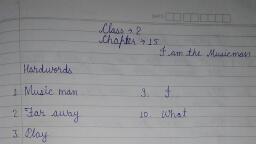 DATE
Class → 2
Chapter → 15
I am the Musicman
Hardwords
1. Music man 9. I
2. Far away 10. What
3. Play